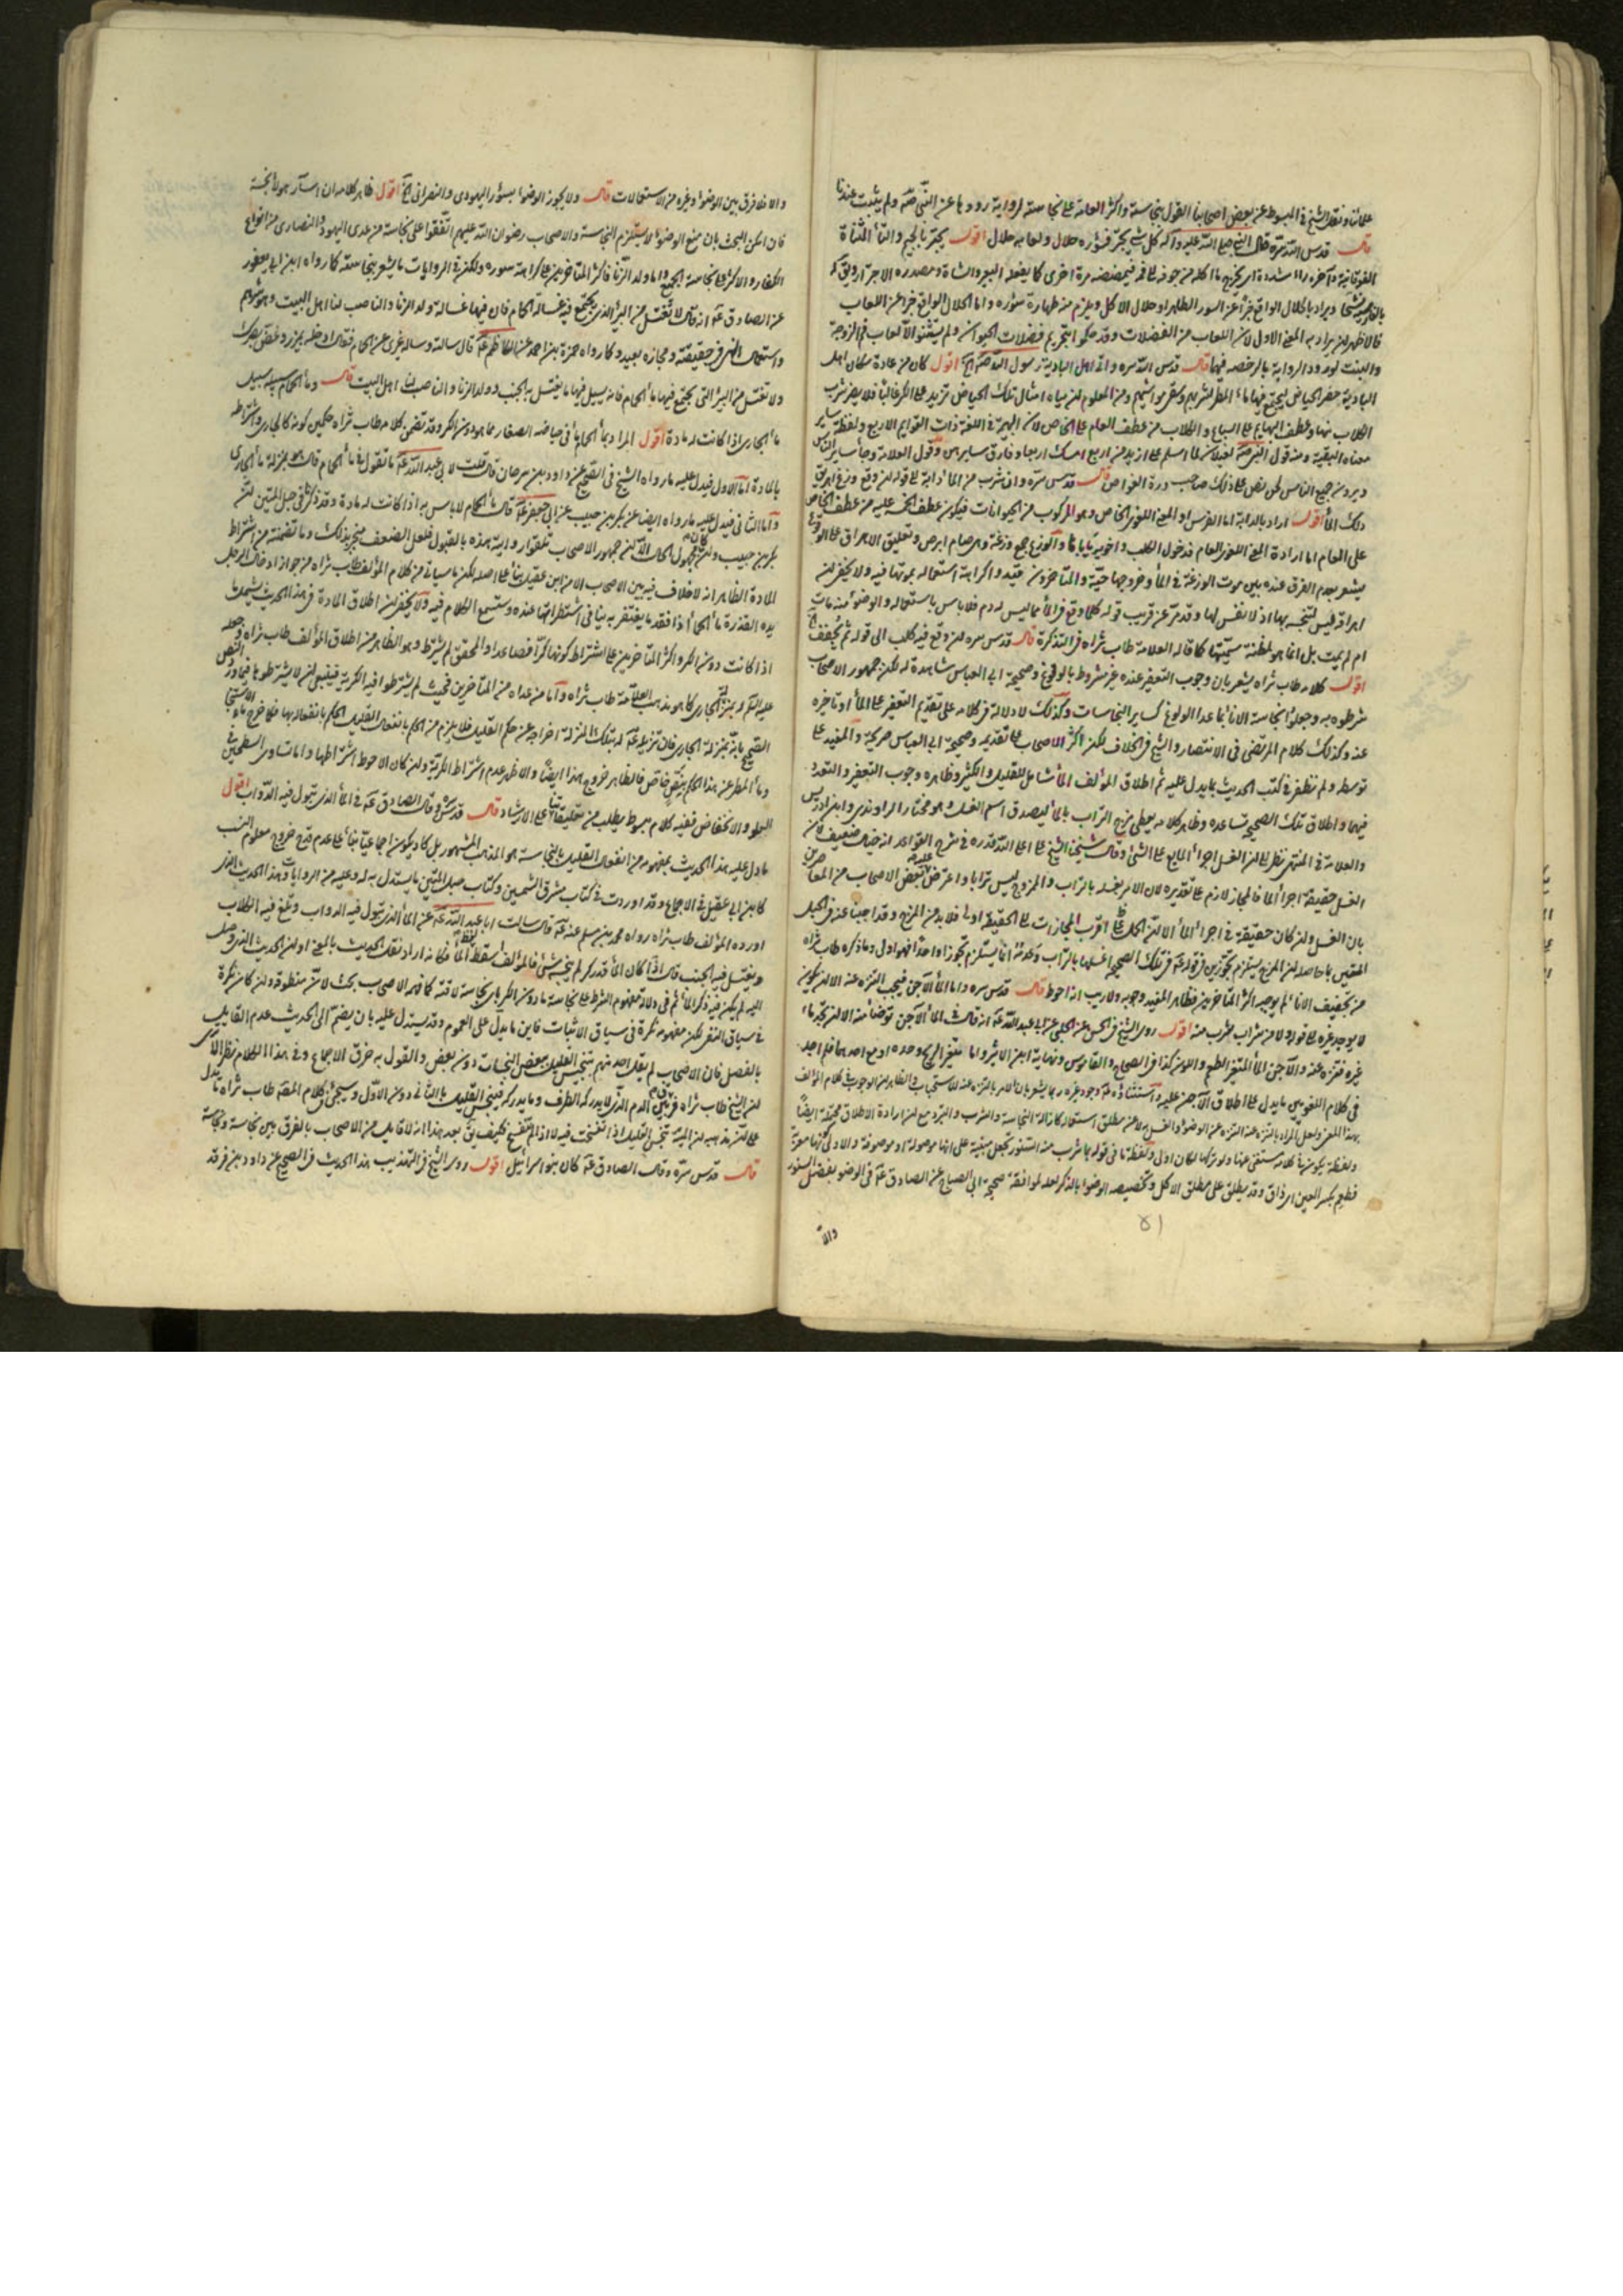 علمائنا ونقل الشيخ في المبسوط عن بعض اصحابنا القول بنجاسته واكثر العامة على نجاسته لرواية رووها عن النبي ص ولم يثبت عندنا
قال قدس الله سره قال النبي صلى الله عليه وآله كل شئ يجتر فسؤره حلال ولعابه حلال اقول يجتر بالجيم والتاء المثناة
الفوقانية وآخره راء مشددة اى يخرج ما اكله من جوفه الى فمه فيمضغه مرة اخرى كما يفعله البعير والشاة ومصدره الاجترار
ويراد بالحلال الواقع خبرا عن السور الطاهر او حلال الاكل ويلزم منه طهارة سؤره واما الحلال الواقع خبرا عن اللعاب
فالاظهر ان يراد به المعنى الاول لان اللعاب من الفضلات وقد حكموا بتحريم فضلات الحيوان ولم يستثنوا الا لعاب فم الزوجة
والبنت لورود الرواية بالرخصة فيهما قال قدس الله سره واتى اهل البادية رسول الله ص الخ اقول كان من عادة سكان اهل
البادية حفر الحياض ليجتمع فيها ماء المطر لشربهم وسقى مواشيهم ومن المعلوم ان مياه امثال تلك الحياض تزيد على الكر غالبا فلا يضر شرب
الكلاب منها وعطف البهايم على السباع والكلاب من عطف العام على الخاص لان البهيمة في اللغة ذات القوايم الاربع ولفظة ساير
معناه البقية ومنه قول النبي ص لغيلان لما اسلم على ازيد من اربع امسك اربعا وفارق سايرهن وقول العلامة وجاء ساير الناس
ويرون جميع الناس لحن نص على ذلك صاحب درة الغواص قال قدس سره وان شرب من الماء دابة الى قوله لان وقع وزغ اهريق
ذلك الماء اقول اراد بالدابة اما الفرس او المعنى اللغوى الخاص وهو المركوب من الحيوانات فيكون عطف الخمسة عليه من عطف الخاص
على العام اما ارادة المعنى اللغوى العام فدخول الكلب واخويه يأباها والوزغ جمع وزغة وهو سام ابرص وتعليق الاهراق على الوقوع
يشعر بعدم الفرق عنده بين موت الوزغة في الماء وخروجها حية والمتأخرون قيدوا كراهة استعماله بموتها فيه ولا يخفى ان
اهراقه ليس لتنجسه بها اذ لا نفس لها وقد مر عن قريب قوله كلما وقع في الماء مما ليس له دم فلا باس باستعماله والوضوء منه مات
ام لم يمت بل انما هو لمظنة سميتها كما قاله العلامة طاب ثراه في التذكرة قال قدس سره وان وقع فيه كلب الى قوله ثم يجفف
اقول كلامه طاب ثراه يشعر بان وجوب التعفير عنده غير مشروط بالولوغ وصحيحة ابى العباس شاهدة له لكن جمهور الاصحاب
شرطوه به وجعلوا نجاسة الاناء بما عدا الولوغ كساير النجاسات وكذلك لا دلالة في كلامه على تقديم التعفير على الماء او تاخيره
عنه وكذلك كلام المرتضى في الانتصار والشيخ في الخلاف لكن اكثر الاصحاب على تقديمه وصحيحة ابى العباس صريحة والمفيد على
توسطه ولم نظفر في كتب الحديث بما يدل عليه ثم اطلاق المؤلف الماء شامل للقليل والكثير وظاهره وجوب التعفير والتعدد
فيهما واطلاق تلك الصحيحة تساعده وظاهر كلامه يعطى مزج التراب بالماء ليصدق اسم الغسل وهو مختار الراوندى وابن ادريس
والعلامة في المنتهى نظرا الى ان الغسل اجراء المايع على الشئ وقال شيخنا الشيخ على اعلى الله قدره في شرح القواعد انه خيال ضعيف لان
الغسل حقيقة اجراء الماء فالمجاز لازم على تقديره لان الامر بغسله بالتراب والممزوج ليس ترابا واعترض عليه بعض الاصحاب من المعاصرين
بان الغسل وان كان حقيقة في اجراء الماء الا ان الحمل على اقرب المجازات الى الحقيقة اولى فلا بد من المزج وقد اجبنا عنه في الحبل
المتين بما حاصله ان المزج يستلزم تجوزين في قوله ع في تلك الصحيحة اغسلها بالتراب وعدمه انما يستلزم تجوزا واحدا فهو اولى وما ذكره طاب ثراه
من تجفيف الاناء لم يوجبه اكثر المتاخرين فظاهر المفيد وجوبه ولا ريب انه احوط قال قدس سره واما الماء الآجن فيجب التنزه عنه الا ان يكون
لا يوجد غيره الى قوله ولا من شراب يشرب منه اقول روى الشيخ في الحسن عن الحلبى عن ابى عبد الله ع انه قال في الماء الآجن توضأ منه الا ان تجد ماء
غيره فتنزه عنه والآجن الماء المتغير الطعم واللون كذا في الصحاح والقاموس ونهاية ابن الاثير واما متغير الريح وحده او مع احدهما فلم اجد
في كلام اللغويين ما يدل على اطلاق الآجن عليه واستثناؤه ع وجود غيره ربما يشعر بان الامر بالتنزه عنه للاستحباب والظاهر ان الوجوب في كلام المؤلف
بهذا المعنى ولعل المراد بالتنزه عنه التنزه عن الوضوء والغسل لا عن مطلق استعماله كازالة النجاسة والشرب والتبرد مع ان ارادة الاطلاق محتملة ايضا
ولفظة يكون في كلامه مستغنى عنها ولو تركها لكان اولى ولفظة ما في قوله بما شرب منه السنور تجعل مبنية على انها موصولة او موصوفة والاولى كونها معرفة
فطعم بكسر العين اى ذاق وقد يطلق على مطلق الاكل وتخصيصه الوضوء بالذكر لعله لموافقة صحيحة ابى الصباح عن الصادق ع في الوضوء بفضل السنور
٥١
والا
والا فلا فرق بين الوضوء وغيره من الاستعمالات قال ولا يجوز الوضوء بسؤر اليهودى والنصرانى الخ اقول ظاهر كلامه ان اسآر هؤلاء نجسة
فان امكن البحث بان منع الوضوء لا يستلزم النجاسة والاصحاب رضوان الله عليهم اتفقوا على نجاسة من عدى اليهود والنصارى من انواع
الكفار والاكثر على نجاسة الجميع واما ولد الزنا فاكثر المتاخرين على كراهة سوره ولكن في الروايات ما يشعر بنجاسته كما رواه ابن ابى يعفور
عن الصادق ع انه قال لا تغتسل من البئر الذى يجتمع فيه غسالة الحمام فان فيها غسالة ولد الزنا والناصب لنا اهل البيت وهو شرهم
واستعمال النهى في حقيقته ومجازه بعيد وكما رواه حمزة بن احمد عن الكاظم ع قال سالته وساله غيرى عن الحمام فقال ادخله بمئزر وغض بصرك
ولا تغتسل من البئر التى يجتمع فيها ماء الحمام فانه يسيل فيها ما يغتسل به الجنب وولد الزنا والناصب لنا اهل البيت قال وماء الحمام سبيله سبيل
ماء الجارى اذا كانت له مادة اقول المراد بماء الحمام ماء في حياضه الصغار مما هو دون الكر وقد تضمن كلامه طاب ثراه حكمين كونه كالجارى واشتراطه
بالمادة اما الاول فيدل عليه ما رواه الشيخ في الصحيح عن داود بن سرحان قال قلت لابى عبد الله ع ما تقول في ماء الحمام قال هو بمنزلة ماء الجارى
واما الثانى فيدل عليه ما رواه ايضا عن بكر بن حبيب عن ابى جعفر ع قال ماء الحمام لا باس به اذا كانت له مادة وقد ذكرنا في حبل المتين ان
بكر بن حبيب وان كان مجهول الحال الا ان جمهور الاصحاب تلقوا روايته هذه بالقبول فلعل الضعف منجبر بذلك وما تضمنه من اشتراط
المادة الظاهر انه لا خلاف فيه بين الاصحاب الا من ابن عقيل بناء على اصله لكن ما سياتى من كلام المؤلف طاب ثراه من جواز ادخال الرجل
يده القذرة ماء الحمام اذا فقد ما يغتنف به ينافى استطرافها عنده وستسمع الكلام فيه ولا يخفى ان اطلاق المادة في هذا الحديث يشمل ما
اذا كانت دون الكر واكثر المتاخرين على اشتراط كونها كرا فصاعدا والمحقق لم يشترط وهو الظاهر من اطلاق المؤلف طاب ثراه وجعله
عليه السلام له بمنزلة الجارى كما هو مذهب العلامة طاب ثراه واما من عداه من المتاخرين فحيث لم يشترطوا فيه الكرية فينبغى ان لا يشترطوها فيما ورد النص
الصحيح بانه بمنزلة الجارى فان تنزيله ع له بتلك المنزلة اخراجه عن حكم القليل فلا يلزم من الحكم بانفعال القليل الحكم بانفعاله بها فكما خرج ماء الاستنجاء
وماء المطر عن هذا الحكم بنص خاص فالظاهر خروج هذا ايضا والاظهر عدم اشتراط الكرية وان كان الاحوط اشتراطها واما تساوى السطحين
العلو والانخفاض ففيه كلام مبسوط يطلب من تعليقاتنا على الارشاد قال قدس سره وقال الصادق ع في الماء الذى تبول فيه الدواب اقول
ما دل عليه هذا الحديث بمفهومه من انفعال القليل بالنجاسة هو المذهب المشهور بل كاد يكون اجماعيا بناء على عدم قدح خروج معلوم النسب
كابن ابى عقيل في الاجماع وقد اوردت في كتاب مشرق الشمسين وكتاب حبل المتين ما يستدل به له وعليه من الروايات وهذا الحديث الذى
اورده المؤلف طاب ثراه رواه محمد بن مسلم عنه ع قال سالت ابا عبد الله ع عن الماء الذى تبول فيه الدواب وتلغ فيه الكلاب
ويغتسل فيه الجنب قال اذا كان الماء قدر كر لم ينجسه شئ فالمؤلف اسقط لفظ الماء فكانه اراد نقل الحديث بالمعنى او ان الحديث الذى وصل
اليه لم يكن فيه ذكر الماء ثم في دلالة مفهوم الشرط على نجاسة ما دون الكر باى نجاسة لاقته كما فهمه الاصحاب بحث لان منطوقه وان كان نكرة
في سياق النفى لكن مفهومه نكرة في سياق الاثبات فاين ما يدل على العموم وقد يستدل عليه بان يضم الى الحديث عدم القايل
بالفصل فان الاصحاب لم يقل احد منهم بتنجيس القليل ببعض النجاسات دون بعض والقول به خرق الاجماع وفي هذا الكلام نظر الا ترى
ان الشيخ طاب ثراه فرق بين الدم الذى لا يدركه الطرف وما يدركه فينجس القليل بالثانى دون الاول وسيجئ في كلام المؤلف طاب ثراه ما يدل
على ان مذهبه ان الميتة تنجس القليل اذا تفسخت فيه لا اذا لم تنفسخ فكيف يق بعد هذا انه لا قايل من الاصحاب بالفرق بين نجاسة ونجاسة
قال قدس سره وقال الصادق ع كان بنو اسرائيل اقول روى الشيخ في التهذيب هذا الحديث في الصحيح عن داود بن فرقد